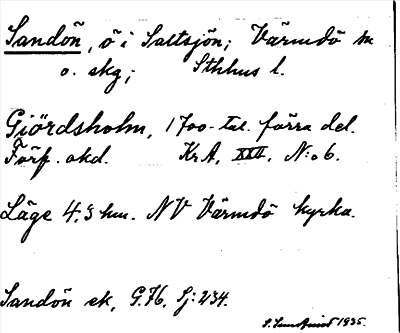 Sandön, ö i Saltsjön; Värmdö sn
o. skg; Sthlms l.
Giördsholm, 1700-tal. förra del.
Förf. okd. KrA, XXII, N:o 6.
Läge 4.3 km. NV Värmdö kyrka.
Sandön ek, G.76. Sj: 234.
1935.